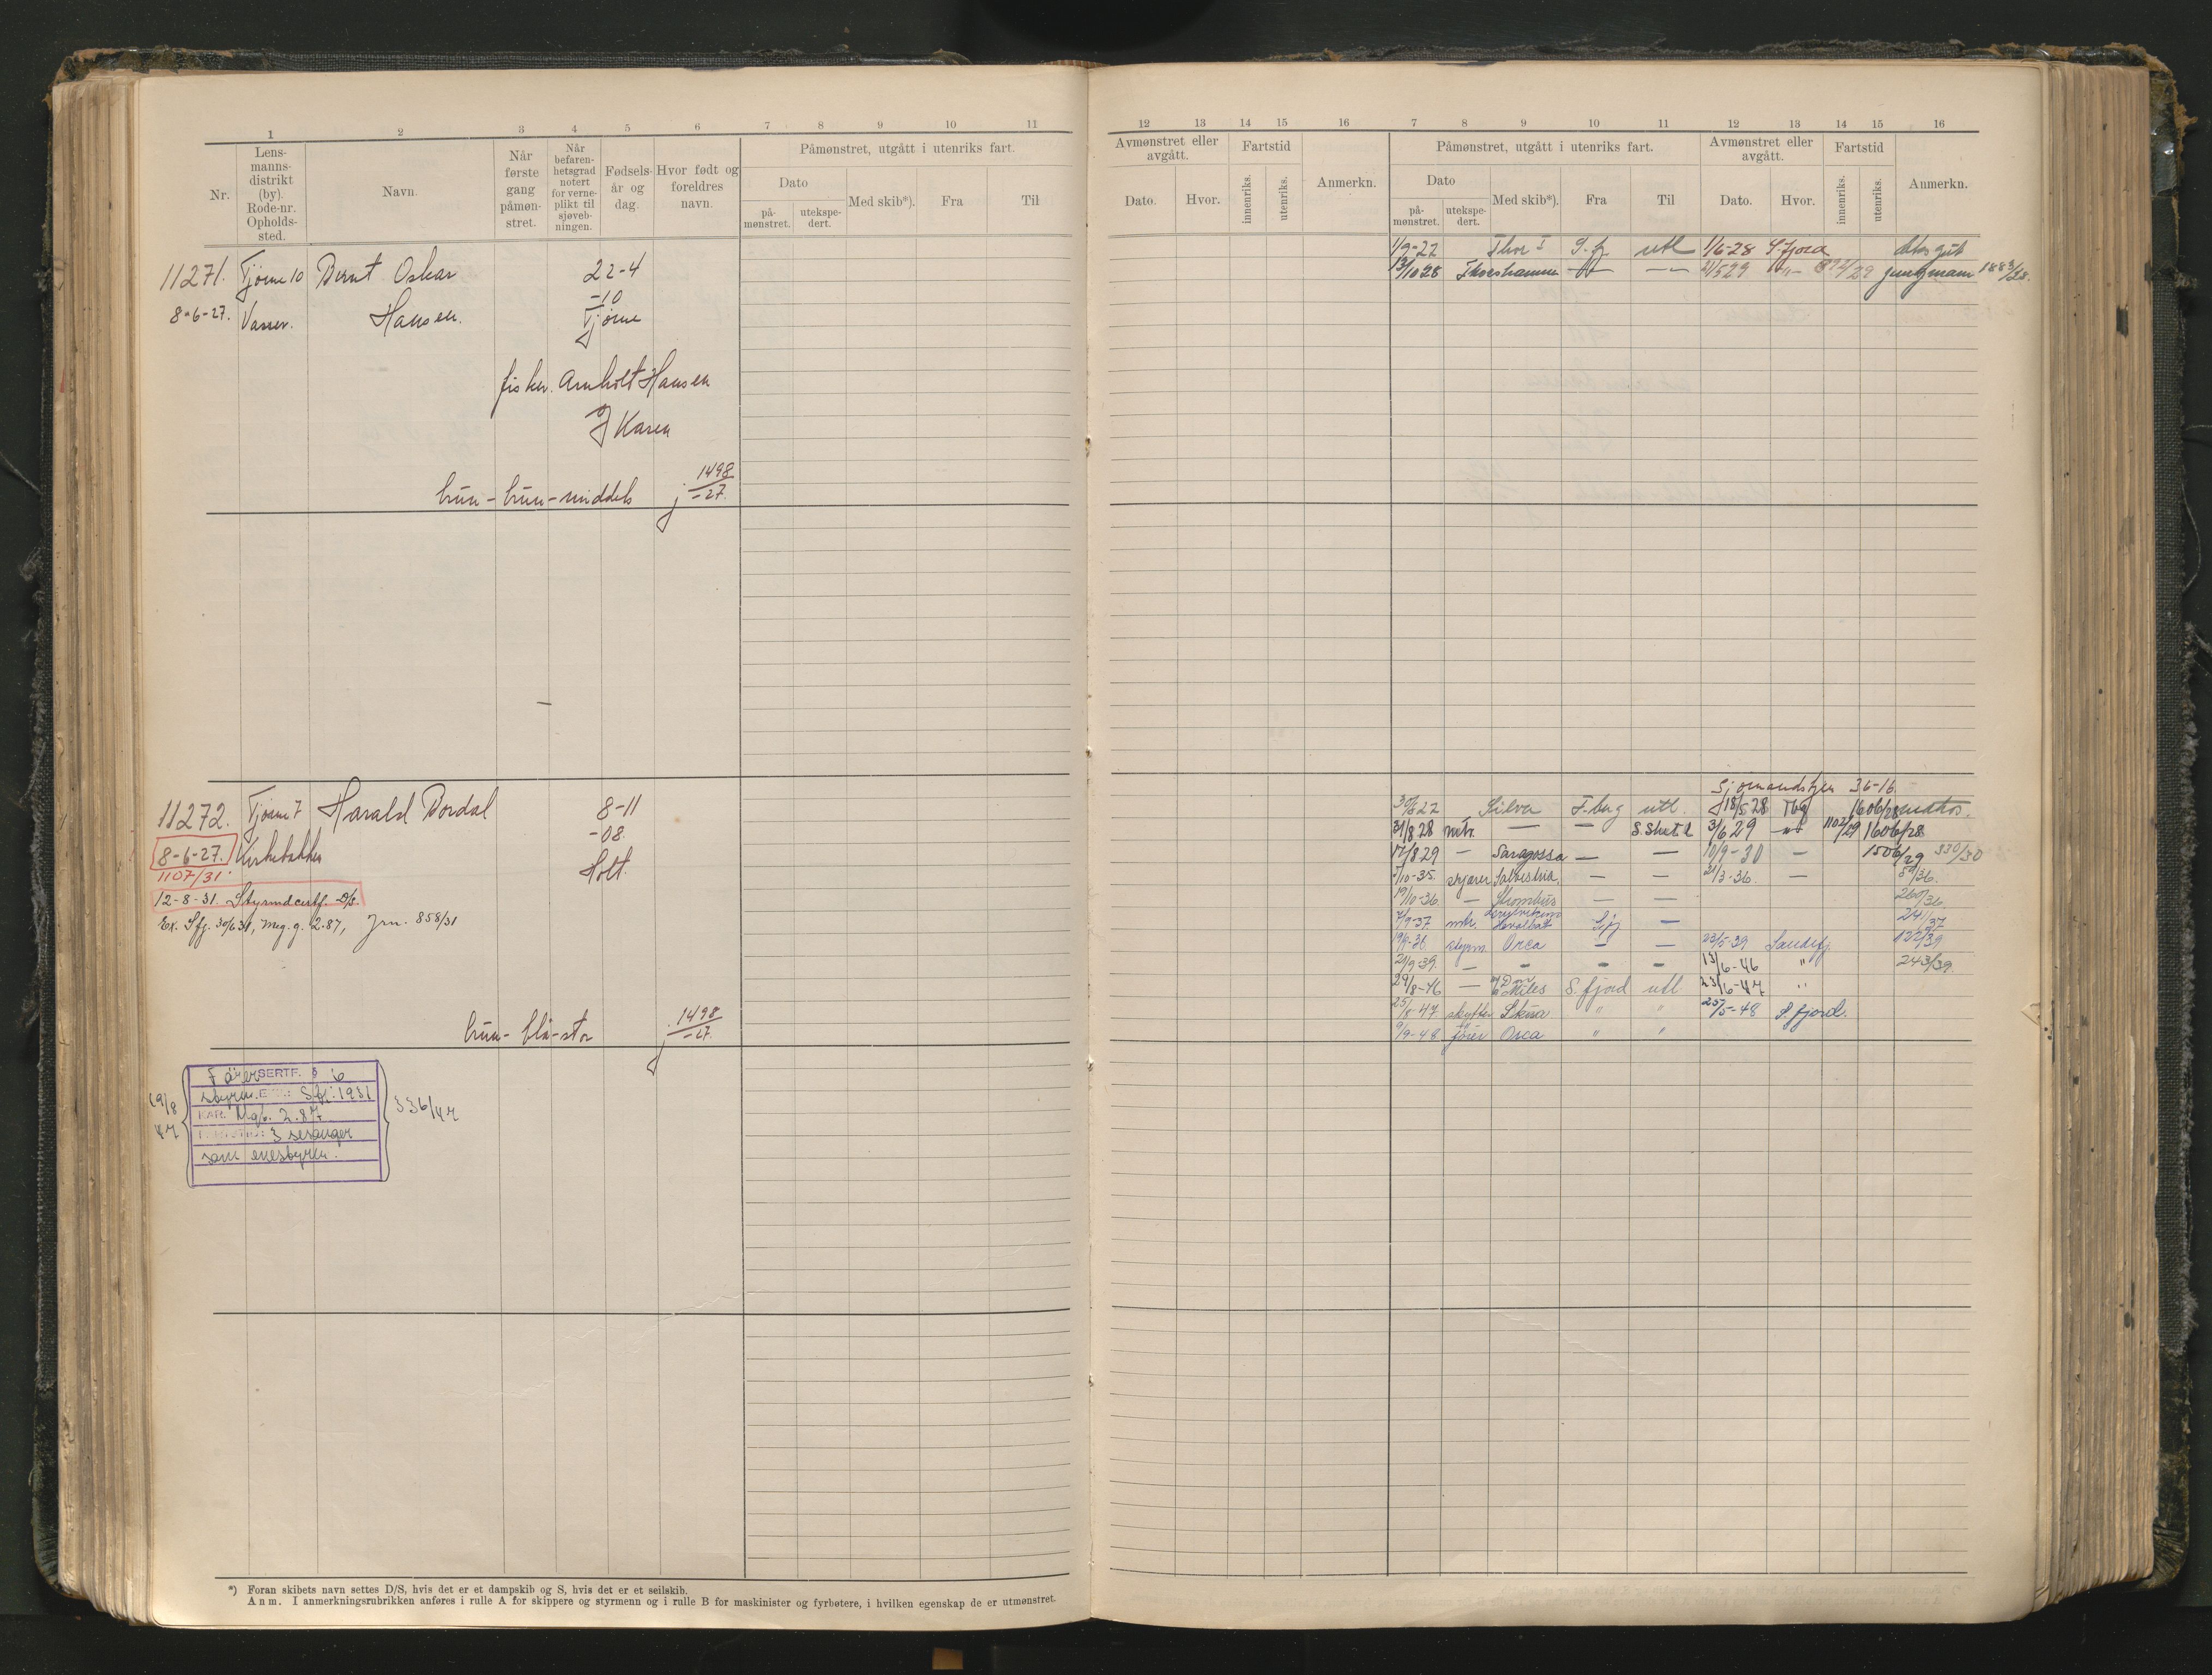 1 2 3 4 5 6 7 8 9 10 11
Nr.
Lens-
manns-
distrikt
(by).
Rode-nr.
Opholds-
sted.
Navn.
Når
første
gang
påmøn-
stret.
Når
befaren-
hetsgrad
notert
for verne-
plikt til
sjøveb-
ningen.
Fødsels-
år og
dag.
Hvor født og
foreldres
navn.
Påmønstret, utgått i utenriks fart.
Dato
på-
mønstret.
utekspe-
dert.
Med skib*).
Fra
Til
11271. Tjøme 10 Bernt Oskar 22-4
-10
8-6-27. Vasser. Hansen. Tjøme
fisker. Arnholt Hansen
J Karen
brun - brun - middels j 1498/-27.
11272. Tjøme 7 Harald Bordal 8-11
-08.
8-6-27. Kirkebakken Holt.
1107/31.
12-8-31. Styrmdcertf.
Ex. Sfj. 30/6 31, Meg. g. 2.87, Jrn. 858/31
brun - blå - stor j. 1498/-27.
Fører SERTF. § 6
styrm. Sfj. 1931
KAR. Mgt. 2.87
3 sesonger
som enestyrm.
19/8
47
336/47
*) Foran skibets navn settes D/S, hvis det er et dampskib og S, hvis det er et seilskib.
Anm. I anmerkningsrubrikken anføres i rulle A for skippere og styrmenn og i rulle B for maskinister og fyrbøtere, i hvilken egenskap de er utmønstret.
12 13 14 15 16 7 8 9 10 11 12 13 14 15 16
Avmønstret eller
avgått.
Fartstid
Dato.
Hvor.
innenriks.
utenriks.
Anmerkn.
Påmønstret, utgått i utenriks fart.
Dato
på-
mønstret.
utekspe-
dert.
Med skib*).
Fra
Til
Avmønstret eller
avgått.
Fartstid
Dato.
Hvor.
innenriks.
utenriks.
Anmerkn.
1/9-27 Thor I S. fj utl 1/6-28 S.fjord
13/10 28 Thorshammer — — 21/5 29 -"- jungmann 1883/28.
Sjømandstjen 36-16
30/6 27 Silva T.berg utl. 18/5 28 Tbg 1606/28 matos.
31/8 28 mtr. — — S.Shetl 3/6 29 -"- 1102/29 1606/28
17/8 29 — Saragossa — — 10/9-30 — 1506/29 330/30
/10-35. Salvestria. — — 21/3-36. —
19/10-36. — Strombus — — 260/36.
7/9-37 mtr. Hvalbåt Sfj — 241/37
19/9-38 styrm. Orca — — 23/5-39 Sandefj. 122/39
21/9-39. — - - - 13/6-46 " 243/39.
29/8-46 — Miles S. fjord utl. 23/6-47 "
25/8-47 skytter Skua " " 25/5-48 S. fjord.
9/9-48 fører Orca " "